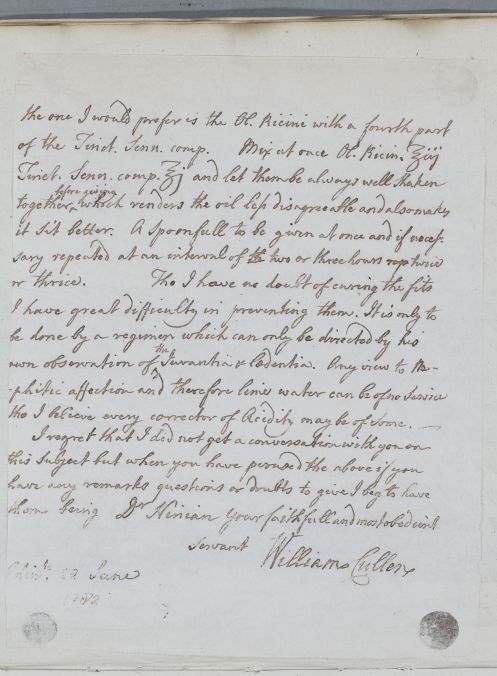 the one I would prefer is the Ol. Ricini with a fourth part
of the Tinct. Senn. comp. Mix at once Ol. Ricin. ℥iij
Tinct. Senn. comp. ℥j and let them be always well shaken
before giving
together, which renders the oil less disagreeable and also makes
it sit better. A spoonfull to be given at once and if neces-
sary repeated at an interval of two or three hours twice
or thrice. Tho I have no doubt of curing the fits
I have great difficulty in preventing them. It is only to
be done by a regimen which can only be directed by his
own observation of the Juvantia & Lædentia. Any view to
-phitic affection and therefore lime water can be of no service
tho I believe every corrector of Acidity may be of some.
I regret that I did not get a conversation with you on
this Subject but when you have perused the above if you
have any remarks questions or doubts to give I beg to have
them being Dr Ninian Your faithfull and most obedient
Servant William Cullen
Edinr. 22 June